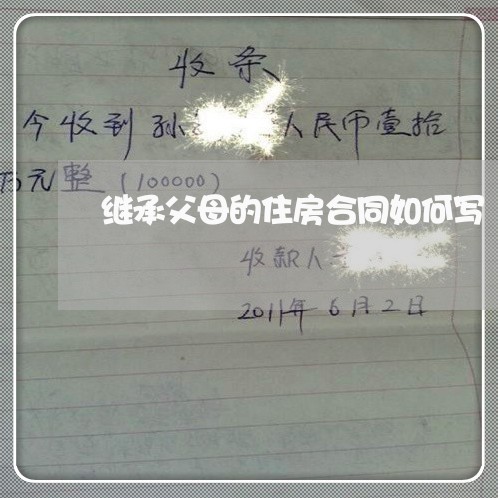 收条
今收到孙 人民币壹拾
万元整（100000）
继承父母的住房合同如何写
收款人
2011年6月2日